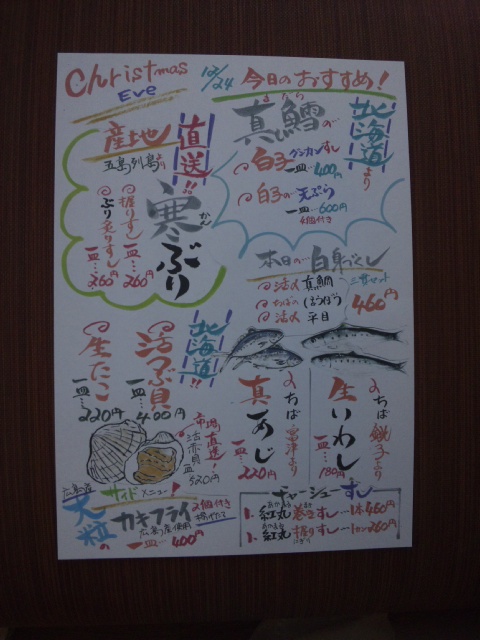 Christmas Eve
12/24 今日のおすすめ!
北海道より
まだら
真鱈の
白子グンカンすし
一皿…400円
白子の天ぷら
一皿…600円
4個付き
産地直送!!
五島列島より
寒ぶり
かん
握りすし
一皿…260円
ぶり炙りすし
一皿…260円
本日の白身づくし
活〆真鯛
ちばのほうぼう
活〆平目
三貫セット
460円
北海道!!
活つぶ貝
一皿…400円
生たこ
一皿…220円
市場直送!
活赤貝
一皿
520円
ちば富津より
真あじ
一皿…220円
ちば銚子より
生いわし
一皿…180円
広島産
サイドメニュー!
大粒の
カキフライ
広島産使用
2個付き
揚げたて
一皿…400円
チャーシューすし
あかまる
紅丸巻きすし…1本460円
あかまる
紅丸握りすし…1カン260円
にぎり